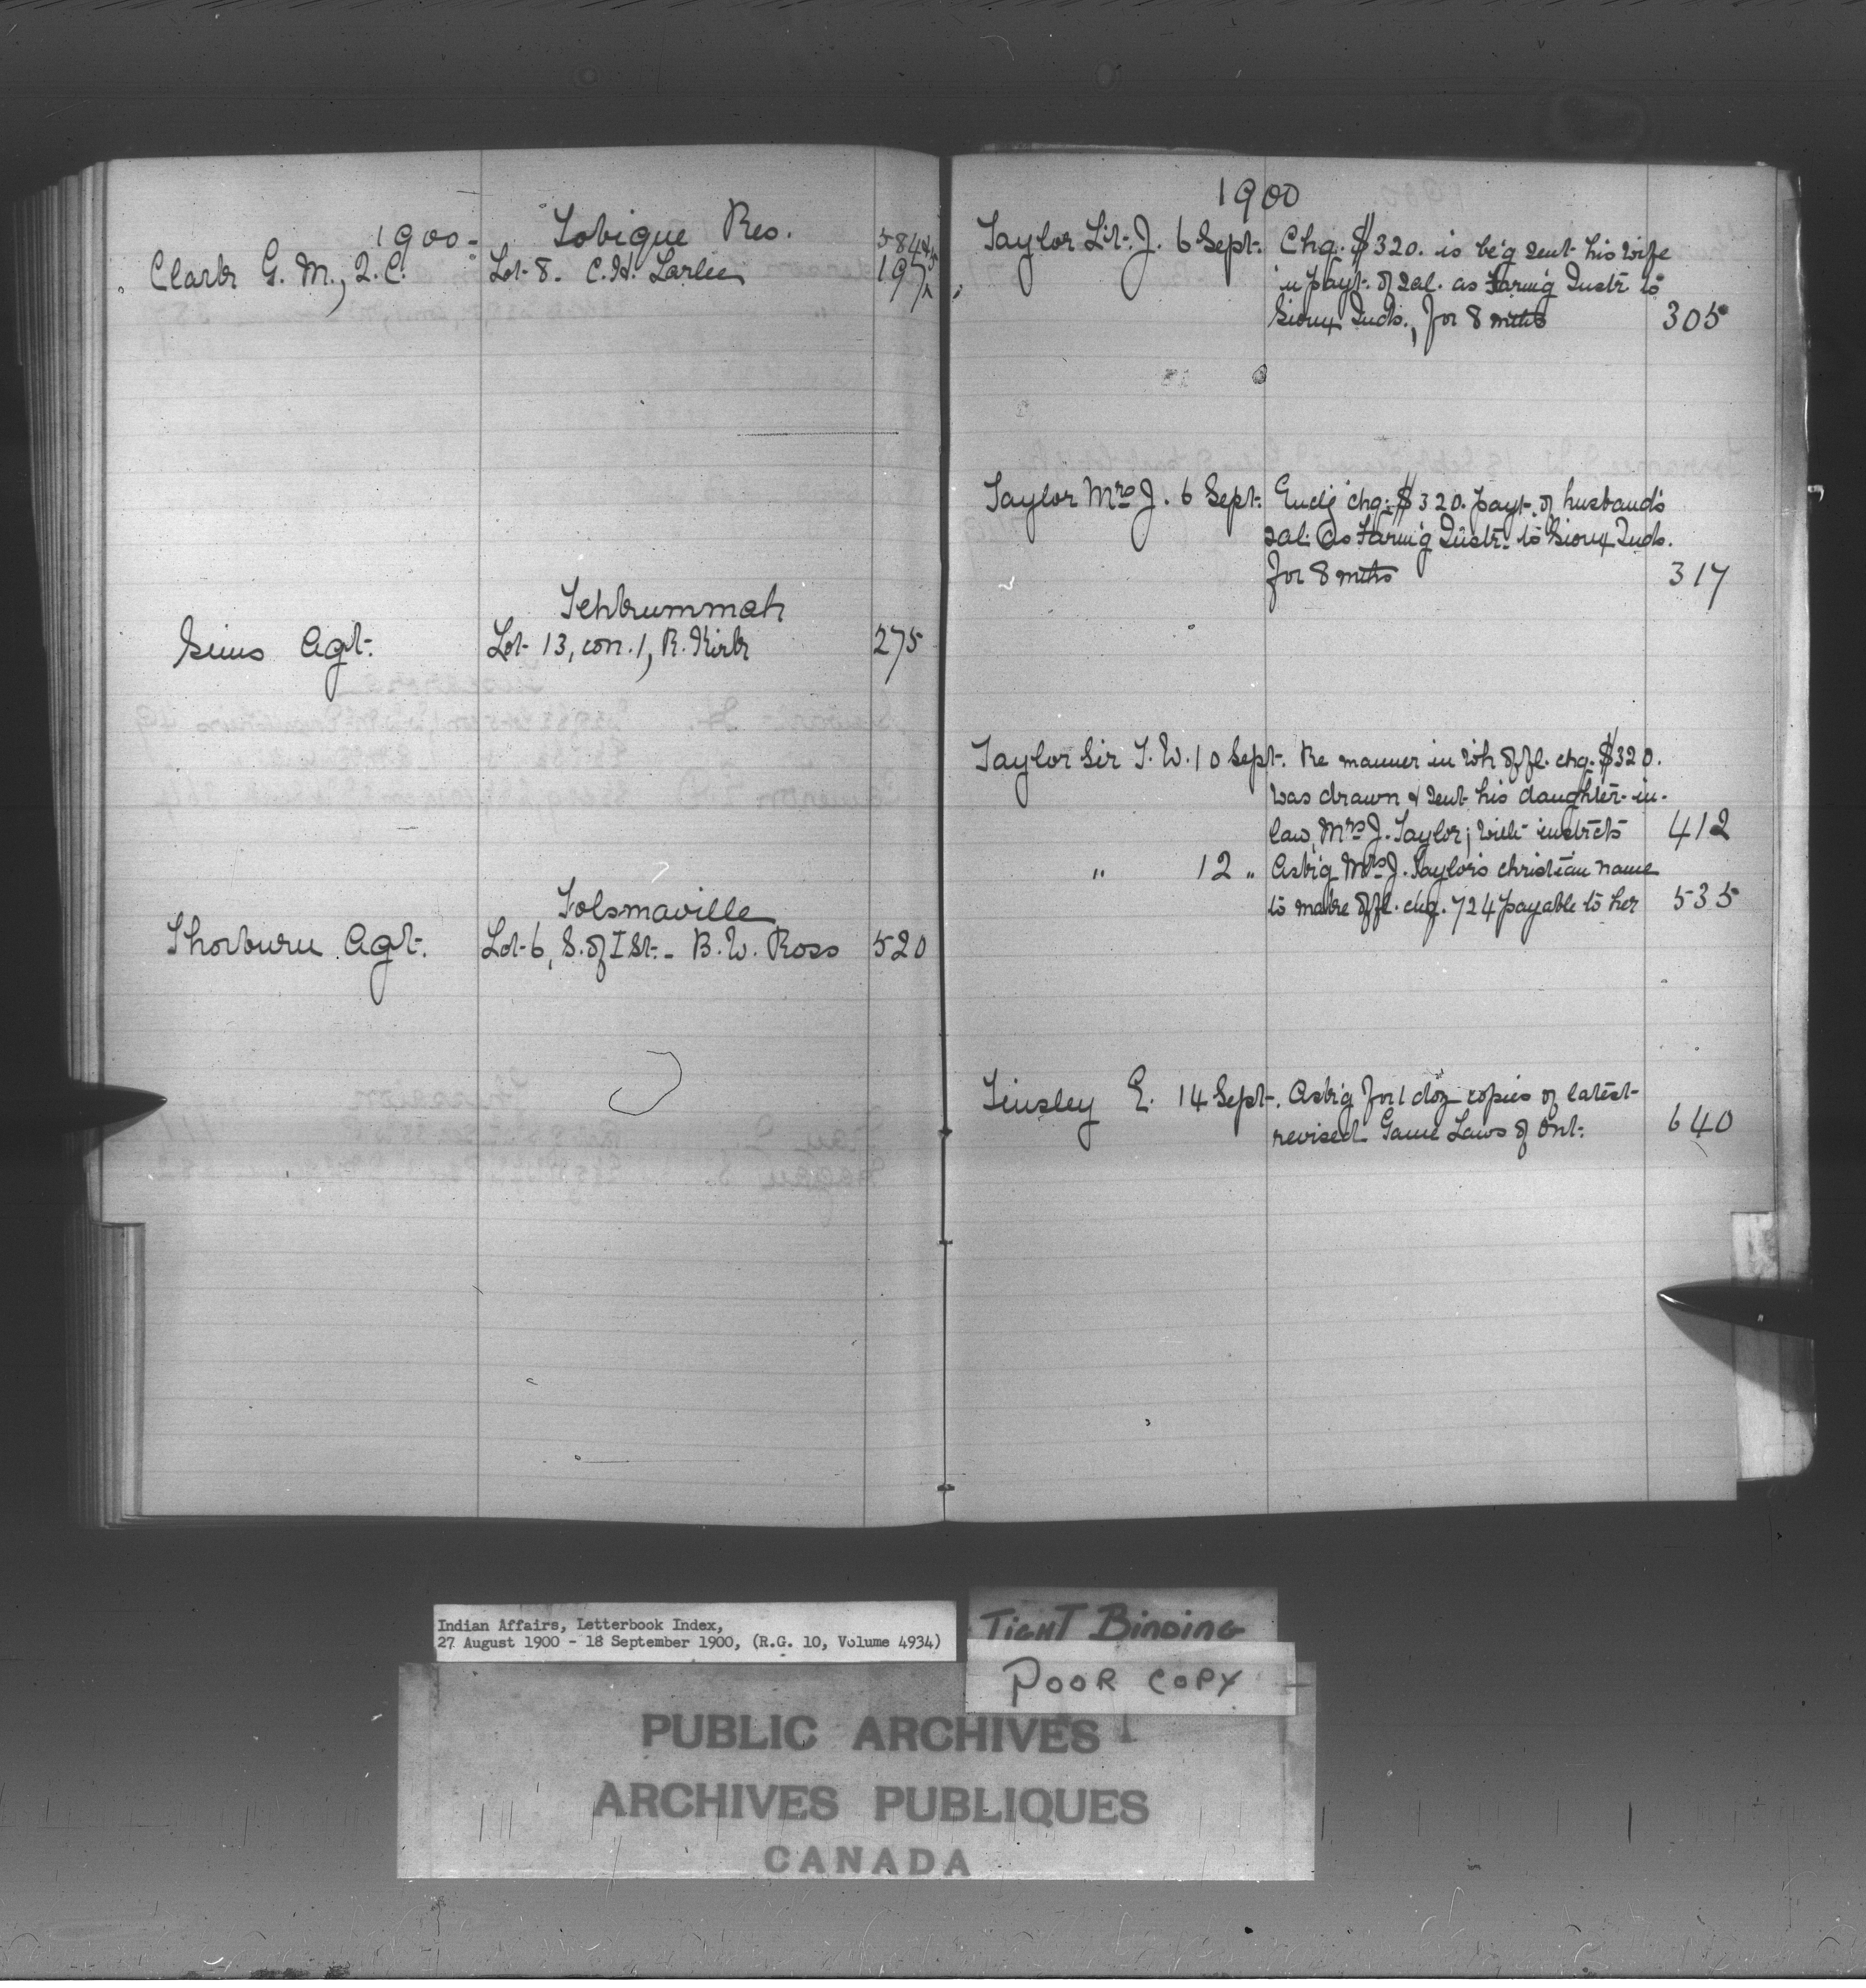 1900- Tobique Res. 584 & 5
Clark G. M., Q.C. Lot 8. C. H. Larlee 197
Tehkummah
Sims Agt. Lot 13, con. 1, R. Kirk 275
Tolsmaville
Thorburn Agt. Lot 6, S. of I St. - B. W. Ross 520
1900
Taylor Lit. J. 6 Sept. Chq. $320. is be'g sent his wife
in payt. of sal. as Farm'g Instr to
Sioux Inds., for 8 mths 305
Taylor Mrs J. 6 Sept. Encl'g chq. $320. payt. of husband's
sal. as Farm'g Instr. to Sioux Inds.
for 8 mths 317
Taylor Sir T. W. 10 Sept. Re manner in wh offl. chq. $320.
was drawn & sent his daughter-in-
law, Mrs J. Taylor; with instrcts 412
" 12 " Ask'g Mrs J. Taylor's christian name
to make offl. chq. 724 payable to her 535
Tinsley E. 14 Sept. Ask'g for 1 doz copies of latest
revised Game Laws of Ont. 640
Indian Affairs, Letterbook Index,
27 August 1900 - 18 September 1900, (R.G. 10, Volume 4934)
TIGHT BINDING
POOR COPY
PUBLIC ARCHIVES
ARCHIVES PUBLIQUES
CANADA